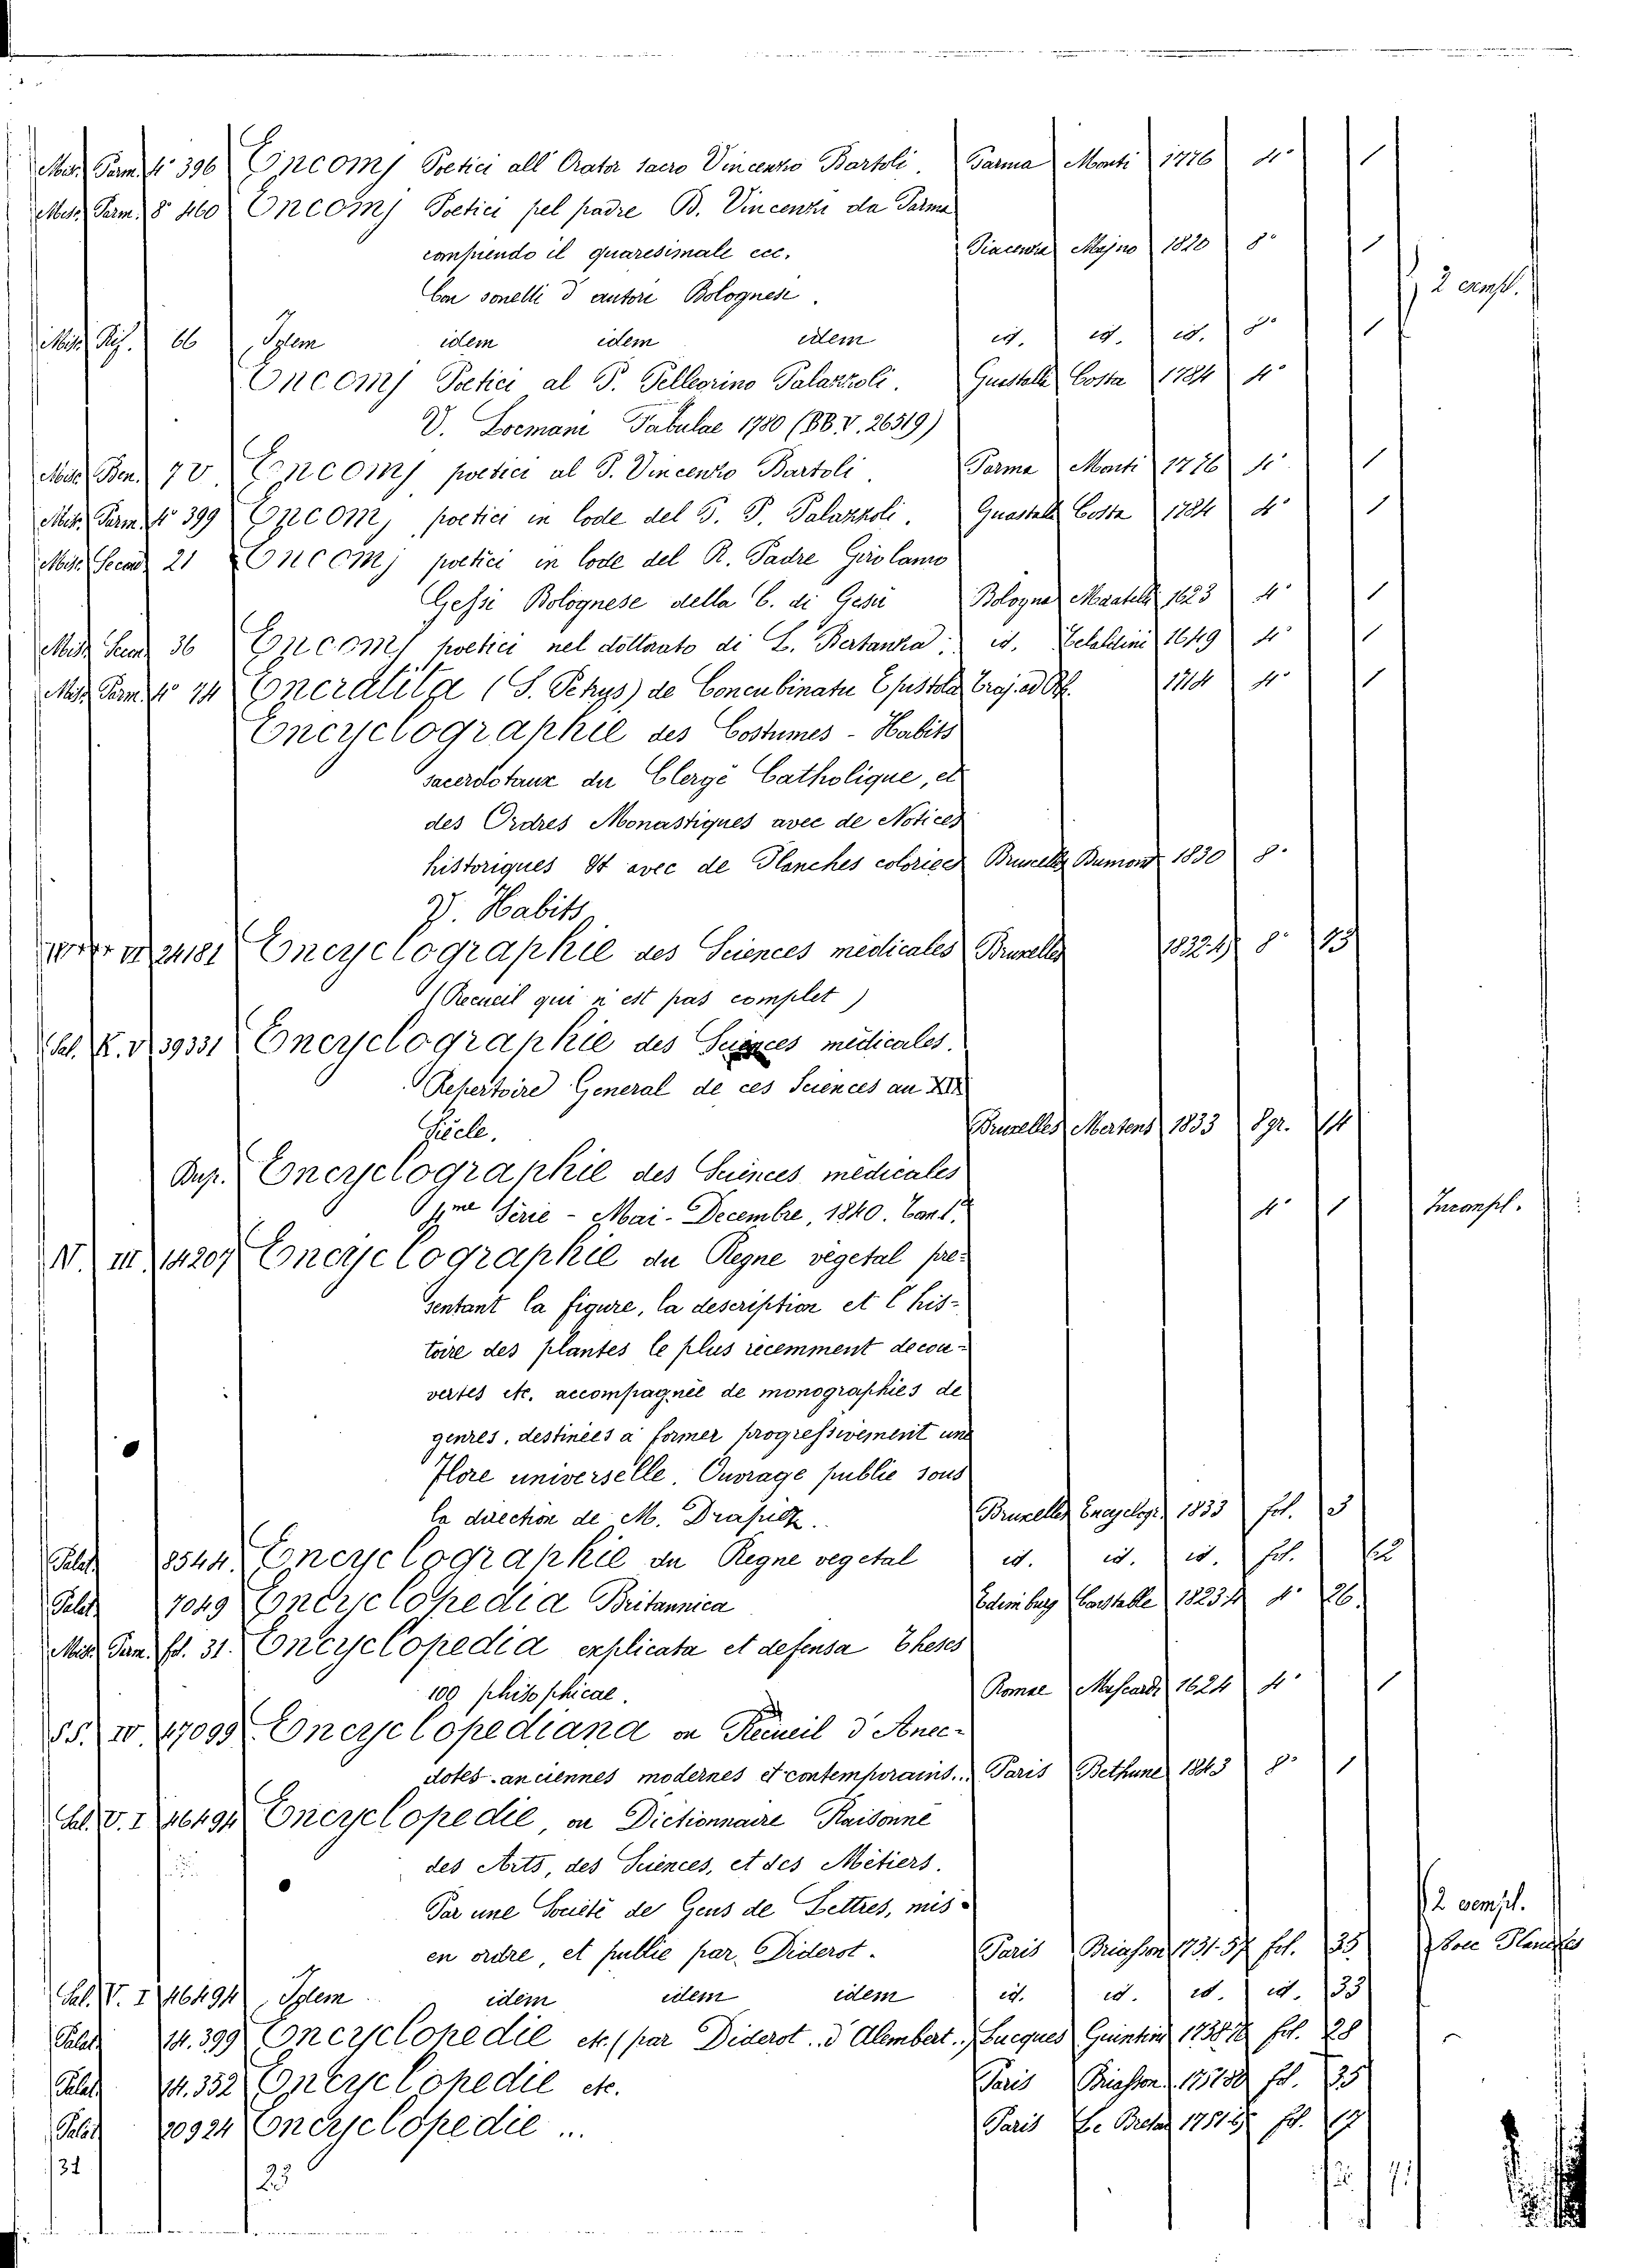 Misc. Parm. 4° 396 Encomj Poetici all Orator sacro Vincenzio Bartoli. Parma Monti 1776 4° 1
Misc. Parm. 8° 460 Encomj Poetici pel padre B. Vincenzi da Parma
compiendo il quaresimale ecc. Piacenza Majno 1820 8° 1
Con sonetti d autore Bolognese. 2 empl.
Misc. 66 Idem idem idem idem id. id. id. 8° 1
Encomj Poetici al P. Pellegrino Palazzoli. Guastalla Costa 1784 4°
V. Loemani Tabulae 1780 (BB. V. 26519)
Misc. Ben. 70 Encomj poetici al P. Vincenzo Bartoli. Parma Monti 1776 4° 1
Misc. Parm. 4° 399 Encomj poetici in lode del P. P. Palazzoli. Guastalla Costa 1784 4° 1
Misc. 21 Encomj poetici in lode del R. Padre Girolamo
Gessi Bolognese della C. di Gesù Bologna 1623 4° 1
Misc. 36 Encomj poetici nel dottorato di L. Bertanza. id. 1649 4° 1
Misc. Parm. 4° 74 (S. Petrys) de Concubinatu Epistola Traj. ad 1704 4° 1
Encyclographie des Costumes - Habits
sacerdotaux du Clergé Catholique, et
des Ordres Monastiques avec de Notices
historiques Et avec de Planches coloriees Bruxelles Dumont 1830 8.
V. Habits
24181 Encyclographie des Sciences médicales Bruxelles 8°
(Recueil qui n est pas complet)
Sal. K. V 39331 Encyclographie des Sciences médicales.
Repertoire General de ces Sciences au XIX
Siècle. Bruxelles Mertens 1833 8gr. 14
Dup. Encyclographie des Sciences médicales
Serie - Mai-Decembre, 1840. 4° 1 Incompl.
N. III. 14207 Encyclographie du Regne végetal pre-
sentant la figure, la description et l his-
toire des plantes le plus récemment decou-
vertes etc. accompagnée de monographies de
genres, destinées a former progressivement une
Flore universelle. Ouvrage publie sous
la direction de M. Drapiez. Bruxelles Encyclogr. 1833 fol. 3
Palat. 8544. Encyclographie du Regne vegetal id. id. id. fol.
Palat. 7049 Encyclopedia Britannica Edimburg Constable 4° 26.
Misc. Parm. fol. 31. Encyclopedia explicata et defensa Theses
100 philosphical. Romae Mascardi 1624 4° 1
SS. IV 47099 Encyclopediana ou Recueil d'Anec-
dotes anciennes modernes et contemporains.. Paris Bethune 1843 8° 1
Sal. V. I 46494 Encyclopedie, ou Dictionnaire Raisonné
des Arts, des Sciences, et des Métiers.
Par une Société de Gens de Lettres, mis
en ordre, et publie par Diderot. Paris Briasson fol. 35 2 esempl.
Sal. V. I 46494 Idem idem idem idem id. id. id. id. 33
Palat. 14.399 Encyclopedie etc. (par Diderot.. d'Alembert..) Lucques fol. 28
Palat. 14.352 Encyclopedie etc. Paris Briasson fol. 35
Palat. 20924 Encyclopedie ... Paris Le Breton fol. 17
31 23